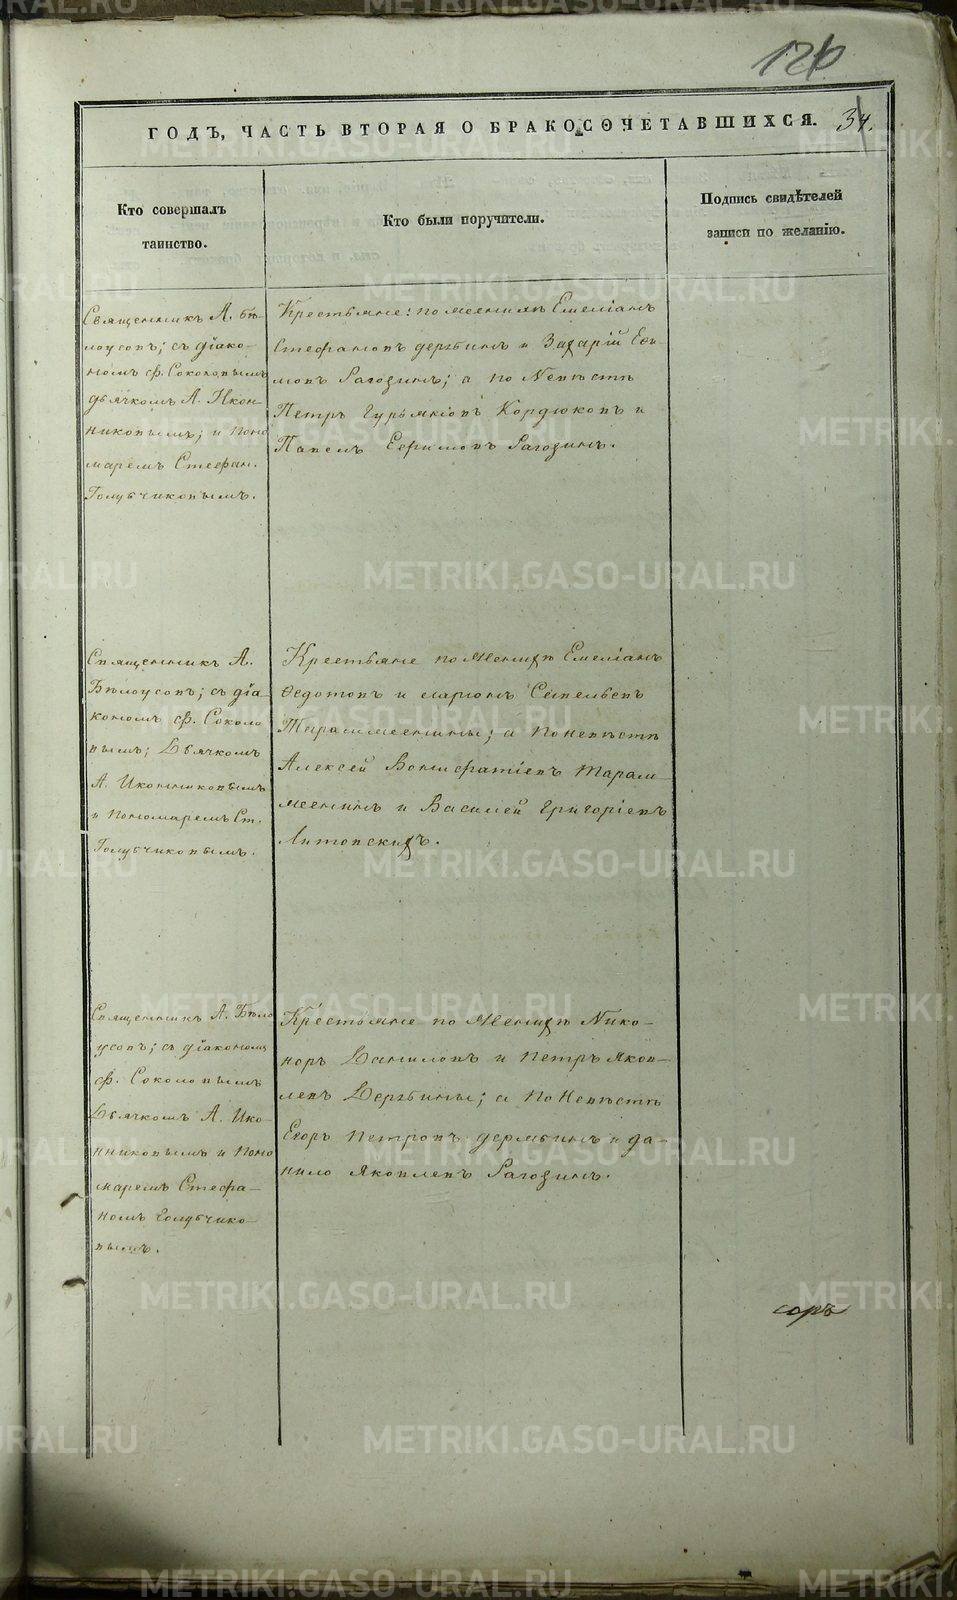 126
ГОДЪ, ЧАСТЬ ВТОРАЯ О БРАКОСОЧЕТАВШИХСЯ. 34.
Кто совершалъ
таинство.
Кто были поручители.
Подпись свидѣтелей
записи по желанію.
Священникъ А. Бѣ-
лоусовъ; съ діако-
номъ Ф. Соколовымъ
дьячкомъ А. Икон-
никовымъ; и поно
маремъ Стефан.
Голубчиковымъ.
Крестьяне: по женихѣ Емеліанъ
Стефановъ Дерябинъ и Захарій Еѳи
мовъ Рагозинъ; а по невѣстѣ
Петръ Гурьяновъ Кордюковъ и
Павелъ Ефимовъ Рагозинъ.
Священникъ А.
Бѣлоусовъ; съ діа-
кономъ Ф. Соколо
вымъ; Дьячкомъ
А. Иконниковымъ
и пономаремъ Ст.
Голубчиковымъ.
Крестьяне по женихѣ Емеліанъ
Ѳедотовъ и Ларіонъ Савельевъ
а по невѣстѣ
Алексей Вонифатіевъ
и Василей Григоріевъ
Литовскихъ.
Священникъ А. Бѣло
усовъ; съ діакономъ
Ф. Соколовымъ
Дьячкомъ А. Ико-
нниковымъ и поно
маремъ Стефа-
номъ Голубчико-
вымъ.
Крестьяне по женихѣ Нико-
норъ Даниловъ и Петръ Яков-
левъ Дерябины; а по невѣстѣ
Егоръ Петровъ Дерябинъ и Да-
нило Яковлевъ Рагозинъ.
соръ
METRIKI.GASO-URAL.RU